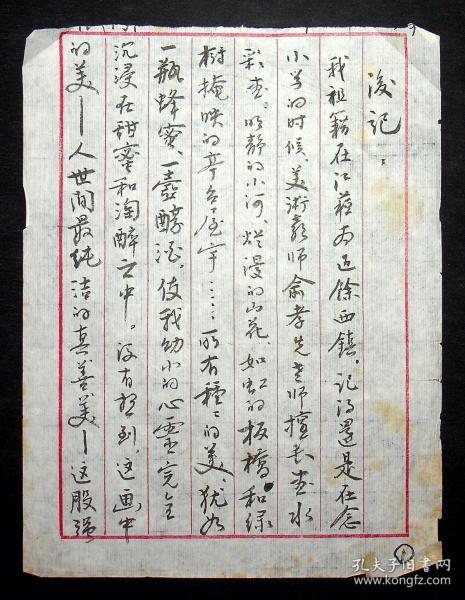 后记:
我祖籍在江苏南通馀西镇。记得还是在念
小学的时候,美术教师俞孝先老师擅长画水
彩画。明静的小河,烂漫的山花,如虹的板桥和绿
树掩映的亭台屋宇……所有种种的美,犹如
一瓶蜂蜜、一壶醇酒,使我幼小的心灵完全
沉浸在甜蜜和陶醉之中。没有想到,这画中
的美——人世间最纯洁的真善美——这股强
1
孔夫子旧书网
www.kongfz.com